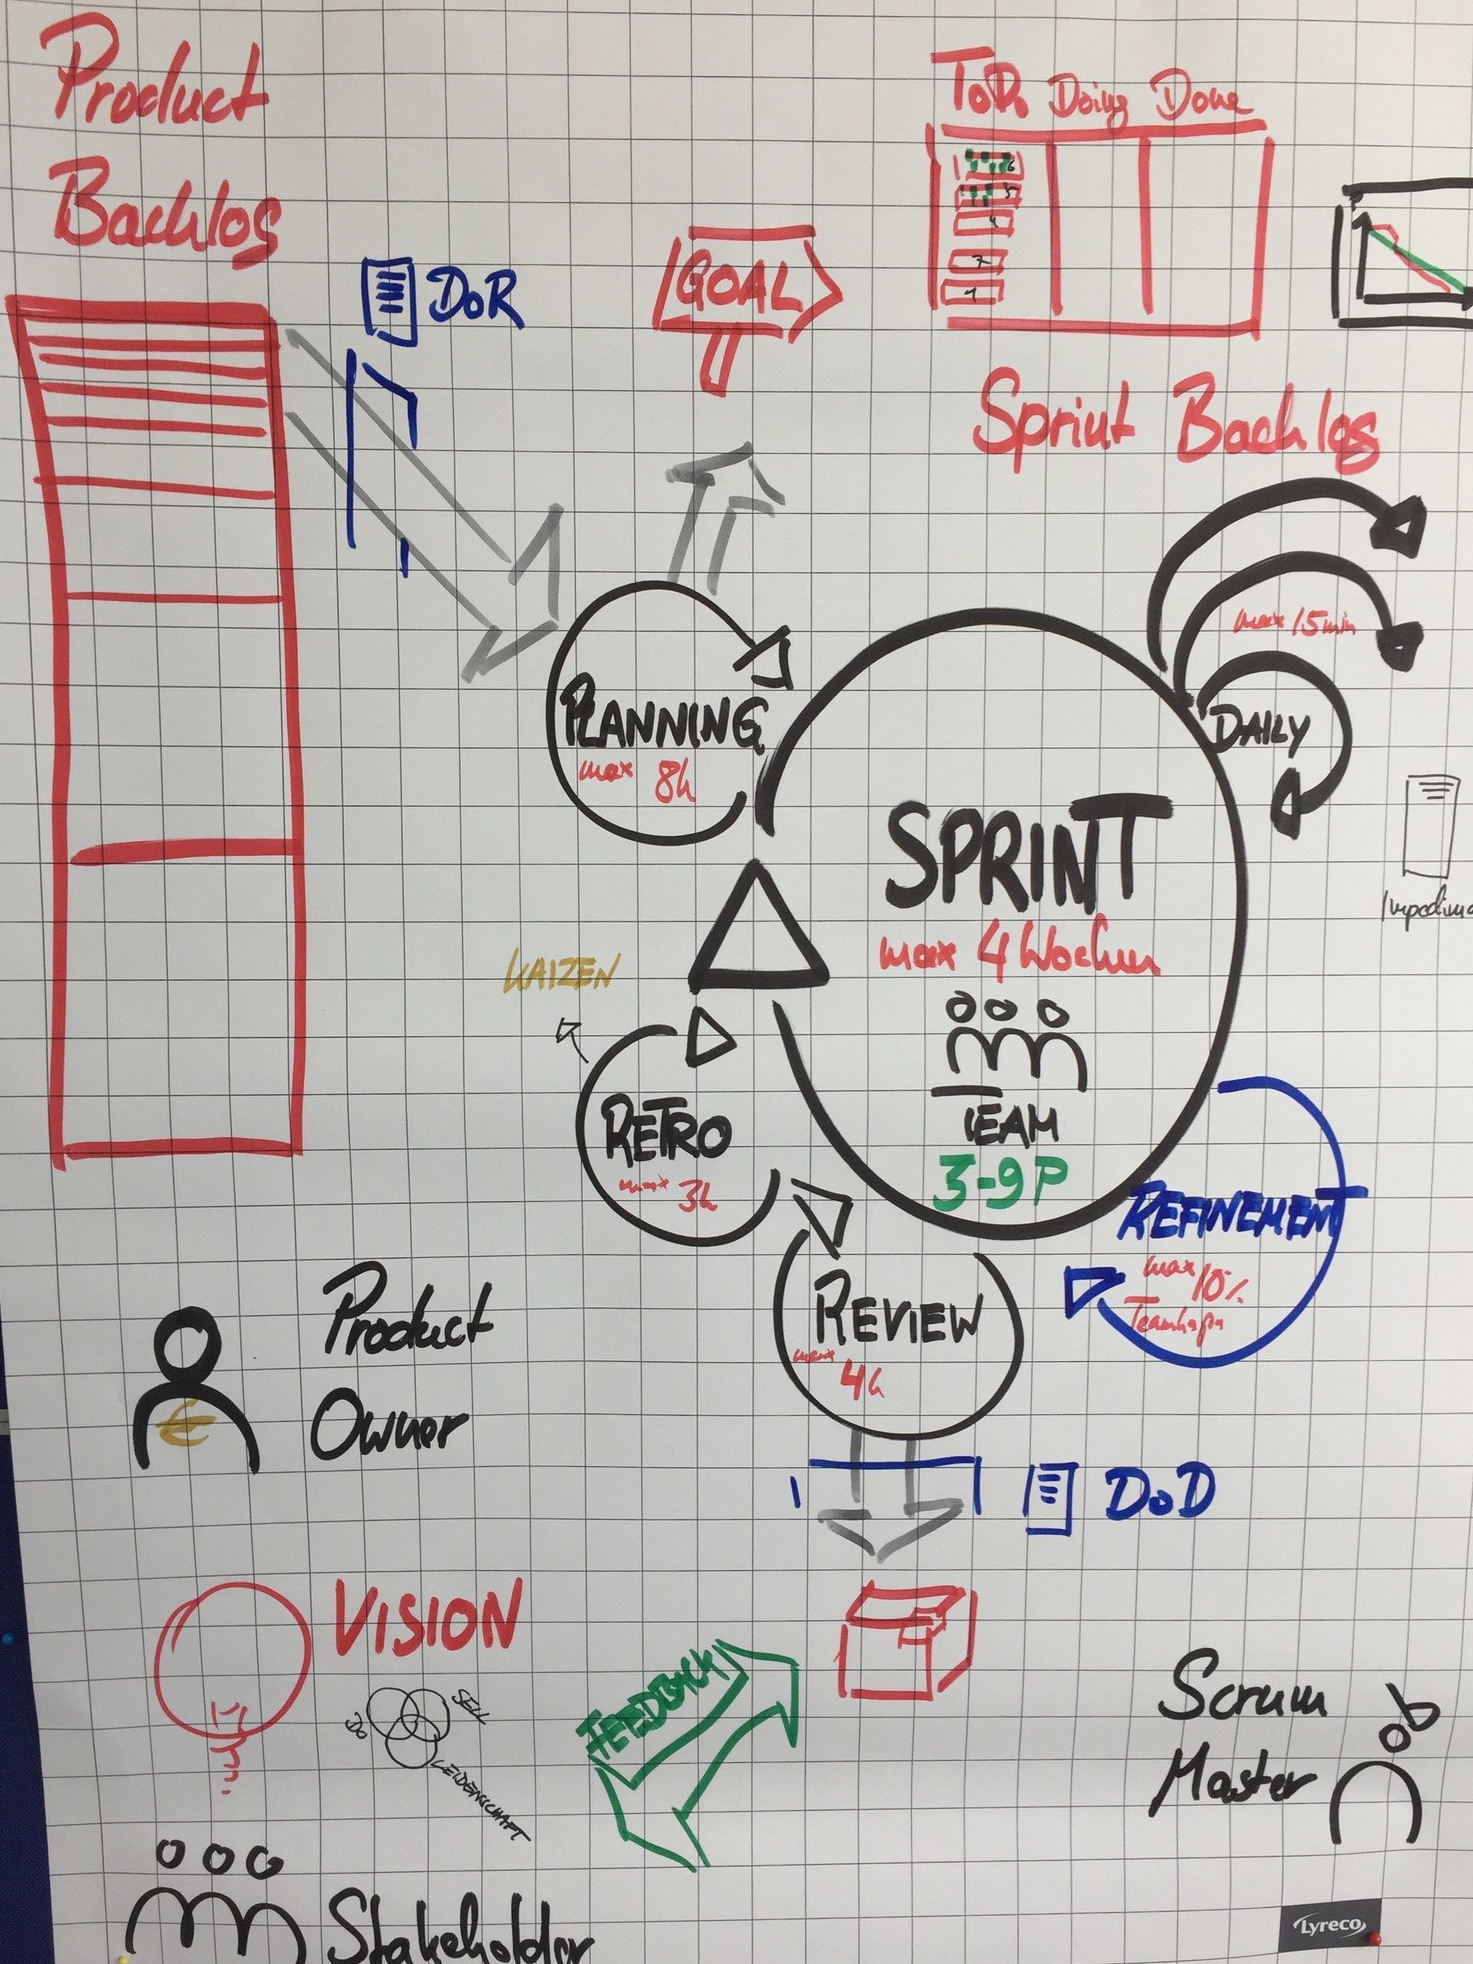 Product
Backlog
ToDo Doing Done
6
5
4
DoR
GOAL
Sprint Backlog
max 15min
DAILY
PLANNING
max 8h
SPRINT
max 4 Wochen
TEAM
3-9P
KAIZEN
RETRO
max 3h
REFINEMENT
max 10%
Teamkapa
REVIEW
max
4h
Product
Owner
€
DoD
VISION
DO
SELL
LEIDENSCHAFT
FEEDBACK
Scrum
Master
Stakeholder
Lyreco